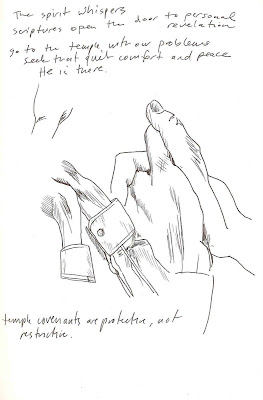 The spirit whispers
scriptures open the door to personal
revelation
go to the temple, with our problems
seek that quiet comfort and peace
He is there.
temple covenants are protective, not
restrictive.